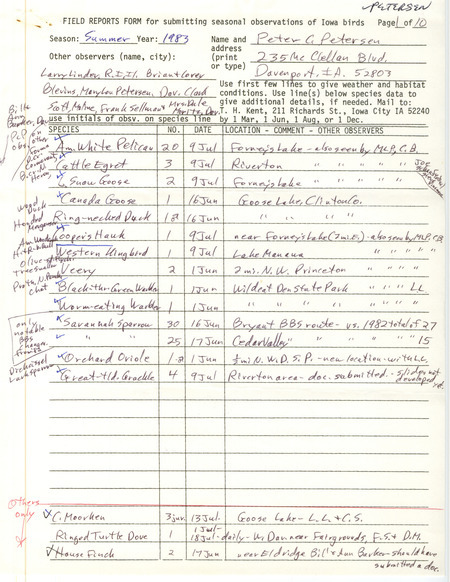 PETERSEN
FIELD REPORTS FORM for submitting seasonal observations of Iowa birds Page 1 of 10
Season: Summer Year: 1983 Name and address (print or type) Peter C. Petersen
235 McClellan Blvd.
Davenport, IA. 52803
Other observers (name, city):
Larry Linder, R.I. Ill. Brian
Blevins, Mary Lou Petersen, Dav.
Scott, Frank Sellman Mrs. Dale
use initials of obsv. on species line
Use first few lines to give weather and habitat
conditions. Use line(s) below species data to
give additional details, if needed. Mail to:
T. H. Kent, 211 Richards St., Iowa City IA 52240
by 1 Mar, 1 Jun, 1 Aug, or 1 Dec.
SPECIES NO. DATE LOCATION - COMMENT - OTHER OBSERVERS
Am. White Pelican 20 9 Jul Forneys Lake - also seen by MLP, C.B.
Cattle Egret 3 9 Jul Riverton " " " " "
Snow Goose 2 9 Jul Forneys Lake " " " " "
Canada Goose 1 16 Jun Goose Lake, Clinton Co.
Ring-necked Duck 1♂ 16 Jun " " " "
Cooper's Hawk 1 9 Jul near Forneys Lake (2 mi. E) - also seen by MLP, CB
Western Kingbird 1 9 Jul Lake Manawa " " " "
Veery 2 1 Jun 2 mi. N.W. Princeton
Black-thr. Green Warbler 1 1 Jun Wildcat Den State Park " " LL
Worm-eating Warbler 1 1 Jun " " " " "
Savannah Sparrow 30 16 Jun Bryant BBS route - vs. 1982 total of 27
" " 25 17 Jun Cedar Valley " " 15
Orchard Oriole 1♂ 1 Jun ½ mi N. W.D.S.P. - new location - with L.L.
Great-tld. Grackle 4 9 Jul Riverton area - doc. submitted. - slides not
developed yet.
only notable BBS changes from 82
Dickcissel
Lark Sparrow
Others only
C. Moorhen 3 juv. 13 Jul Goose Lake - L.L. & C.S.
Ringed Turtle Dove 1 1 Jul - 18 Jul - daily - W. Dav. near Fairgrounds, F.S. & D.M.
House Finch 2 17 Jun near Eldridge Bill & Ann Barker - should have
submitted a doc.